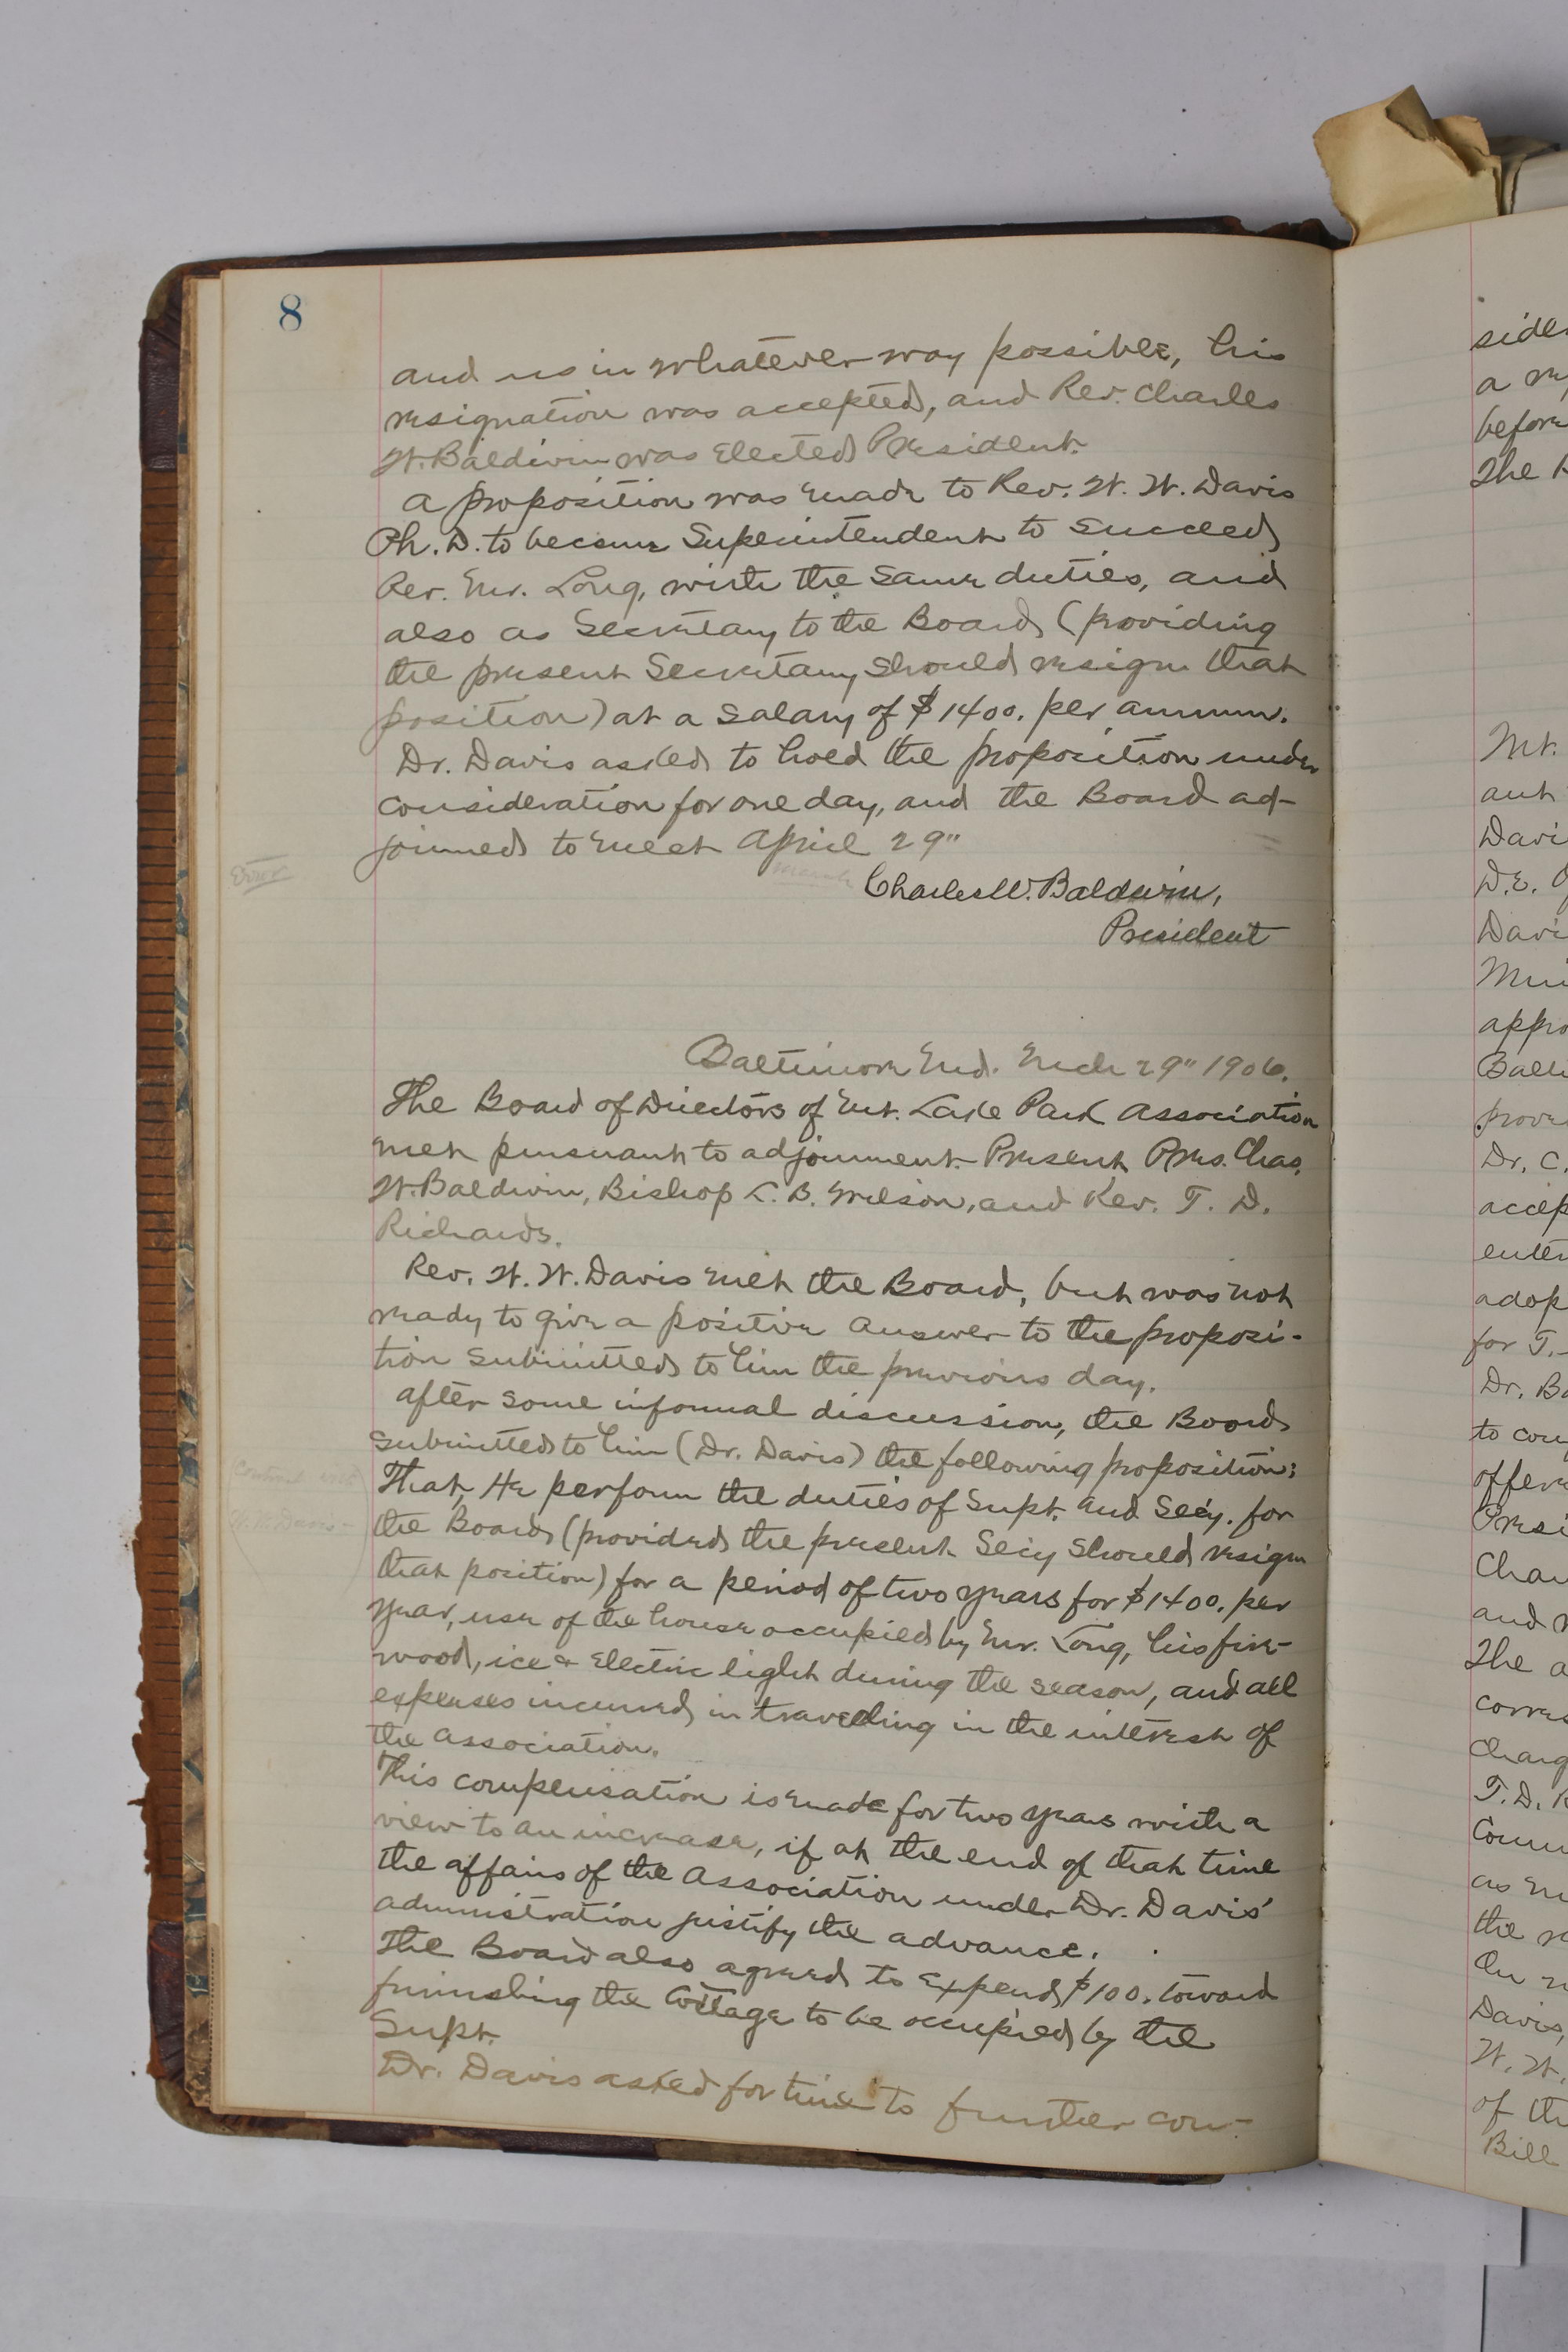 8
and us in whatever way possible, his
resignation was accepted, and Rev. Charles
W. Baldwin was Elected President.
A proposition was made to Rev. W. W. Davis
Ph. D. to become Superintendent to succeed
Rev. Mr. Long, with the same duties, and
also as Secretary to the Board (providing
the present Secretary should resign that
position) at a salary of $1400. per annum.
Dr. Davis asked to hold the proposition under
consideration for one day, and the Board ad-
journed to meet April 29"
Error
March
Charles W. Baldwin,
President
Baltimore Md. Mch 29" 1906.
The Board of Directors of Mt. Lake Park Association
met pursuant to adjournment. Present Pres. Chas.
W. Baldwin, Bishop L. B. Wilson, and Rev. T. D.
Richards.
Rev. W. W. Davis met the Board, but was not
ready to give a positive answer to the proposi-
tion submitted to him the previous day.
After some informal discussion, the Board
submitted to him (Dr. Davis) the following proposition:
That, He perform the duties of Supt. and Secy. for
the Board (provided the present Secy should resign
that position) for a period of two years for $1400. per
year, use of the house occupied by Mr. Long, his fire-
wood, ice & Electric light during the season, and all
expenses incurred in traveling in the interest of
the Association.
Contract with
W. W. Davis -
This compensation is made for two years with a
view to an increase, if at the end of that time
the affairs of the Association under Dr. Davis'
administration justify the advance.
The Board also agreed to Expend $100. toward
furnishing the Cottage to be occupied by the
Supt.
Dr. Davis asked for time to further con-
a
before
The
Mt.
Davi
D.E.
Davi
appro
Dr. C.
accep
adop
for T.
Dr. Ba
to con
offer
Presi
Char
and
The a
T.D. R
as
the
On
Davis,
W. W.
of the
Bill